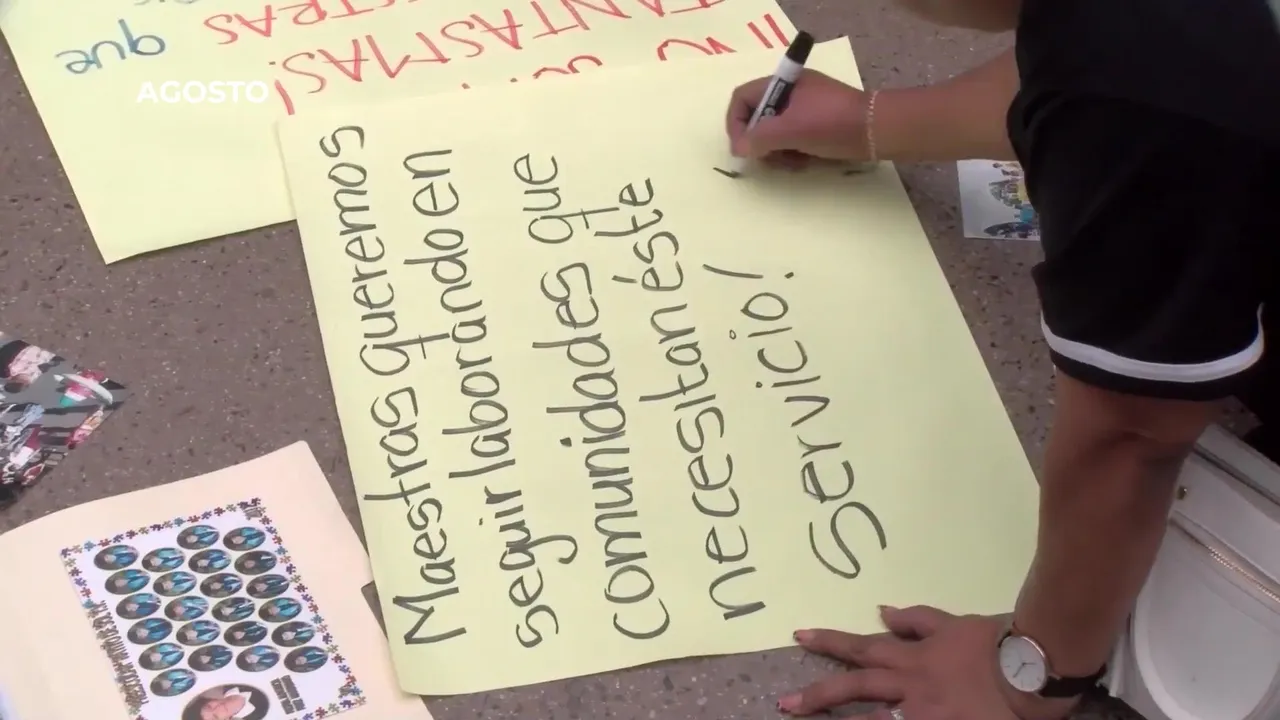 AGOSTO
Maestras queremos
seguir laborando en
comunidades que
necesitan éste
Servicio!
FANTASMAS!
que